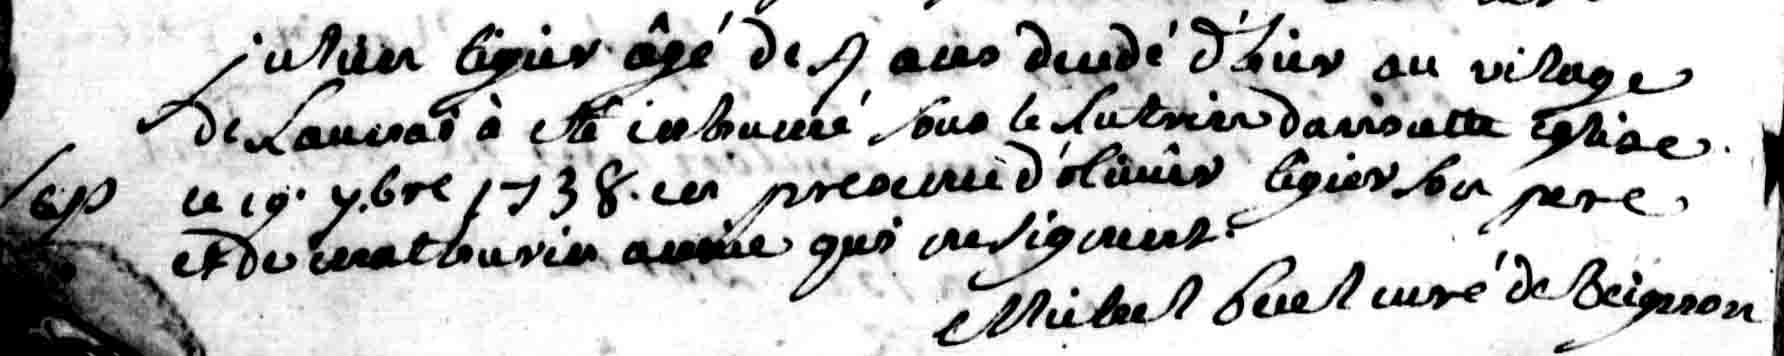 julien legier âgé de ans decedé d'hier au vilage
de Launai à été inhumé sous le lutrin dans cette Eglise.
Sep ce 19. 7.bre 1738. en presence d'olivier legier son pere
et de mathurin qui ne signent.
Michel curé de Beignon